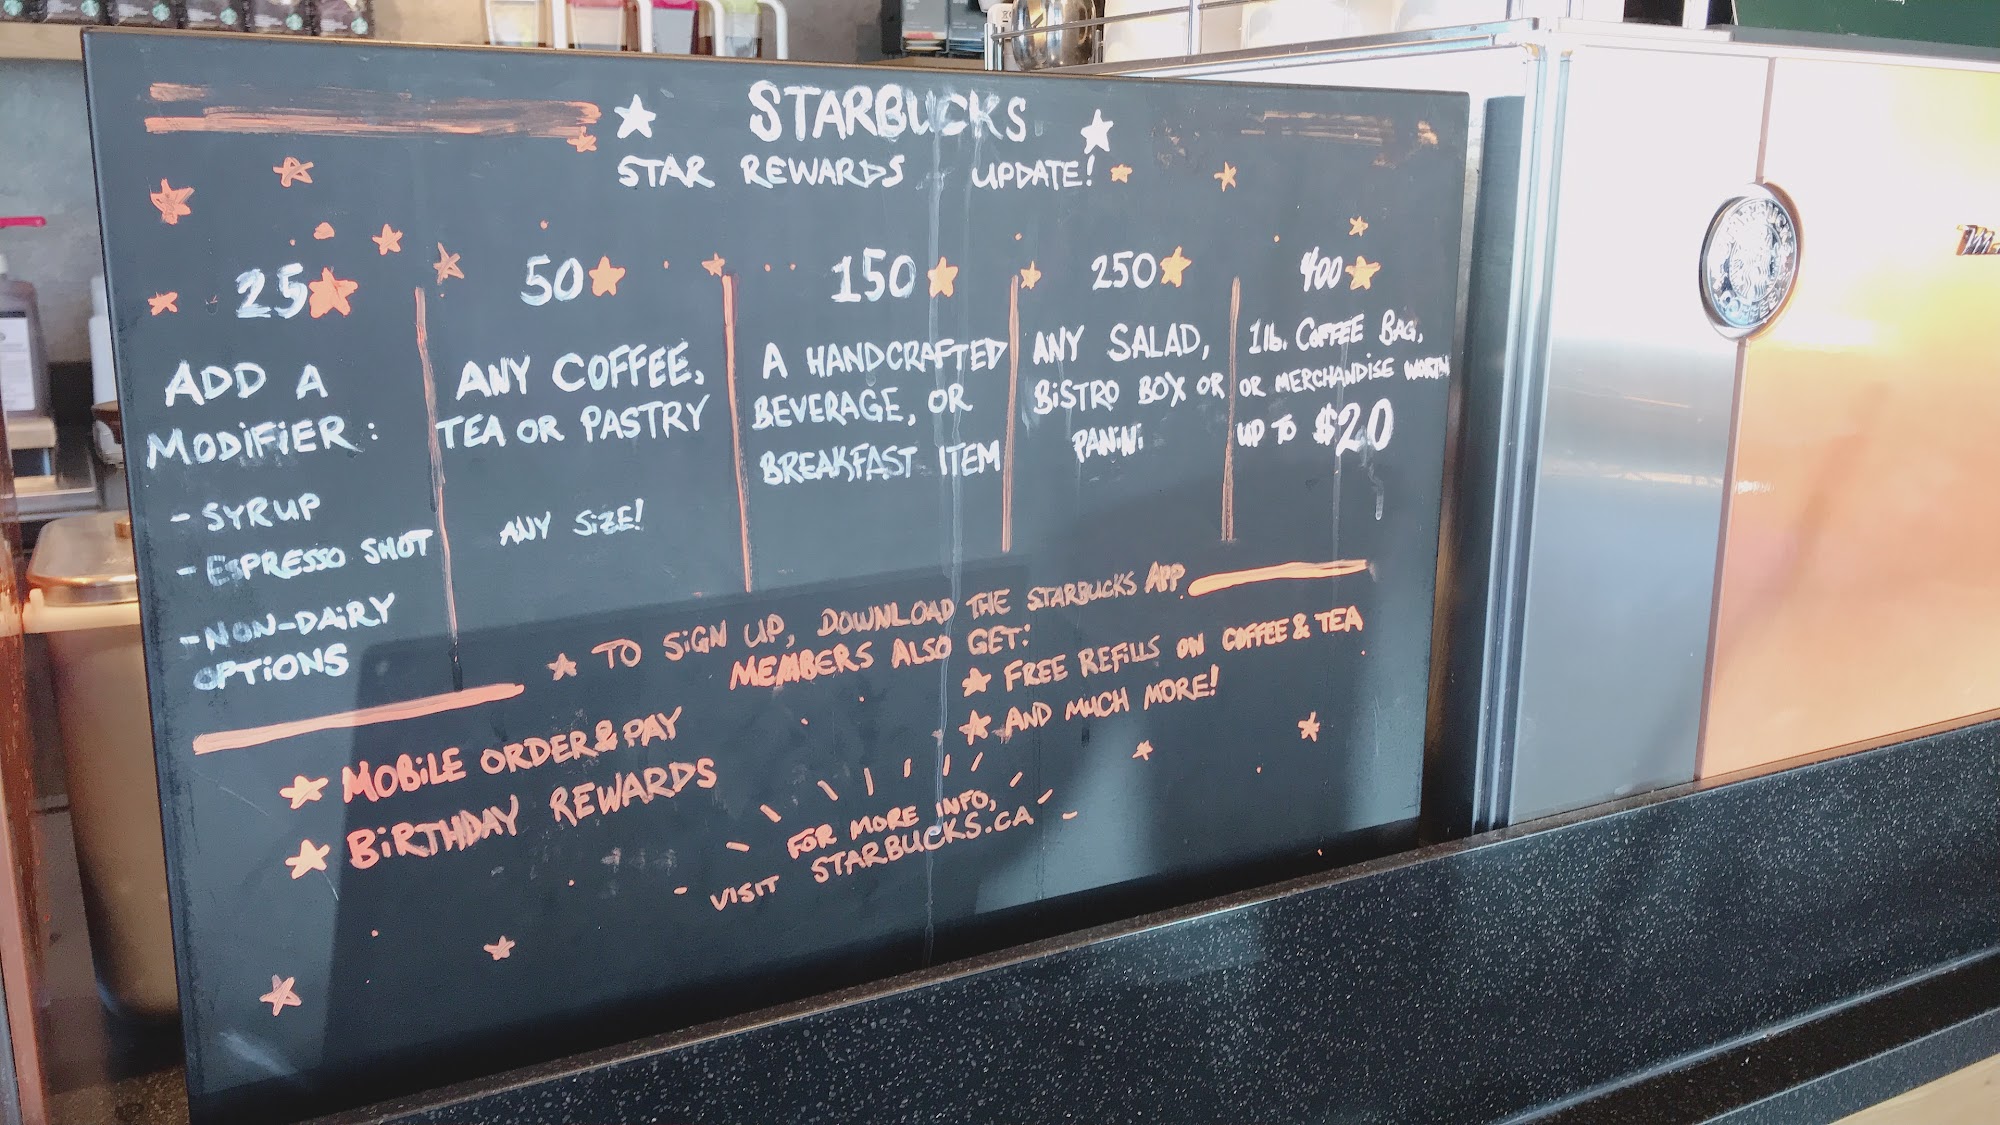 STARBUCKS
STAR REWARDS UPDATE!
25
ADD A
MODIFIER:
- SYRUP
- ESPRESSO SHOT
- NON-DAIRY
OPTIONS
50
ANY COFFEE,
TEA OR PASTRY
ANY SIZE!
150
A HANDCRAFTED
BEVERAGE, OR
BREAKFAST ITEM
250
ANY SALAD,
BISTRO BOX OR
PANINI
400
1lb. COFFEE BAG,
OR MERCHANDISE WORTH
UP TO $20
TO SIGN UP, DOWNLOAD THE STARBUCKS APP.
MEMBERS ALSO GET:
MOBILE ORDER & PAY
BIRTHDAY REWARDS
FREE REFILLS ON COFFEE & TEA
AND MUCH MORE!
FOR MORE INFO,
VISIT STARBUCKS.CA